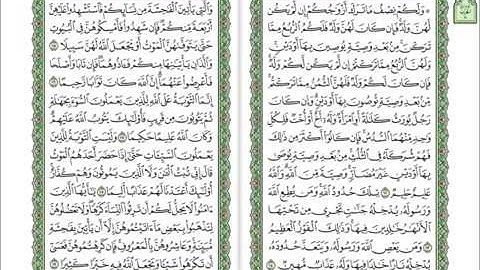 وَلَكُمْ نِصْفُ مَا تَرَكَ أَزْوَٰجُكُمْ إِن لَّمْ يَكُن
لَّهُنَّ وَلَدٌ فَإِن كَانَ لَهُنَّ وَلَدٌ فَلَكُمُ ٱلرُّبُعُ مِمَّا
تَرَكْنَ مِنۢ بَعْدِ وَصِيَّةٍ يُوصِينَ بِهَآ أَوْ دَيْنٍ
وَلَهُنَّ ٱلرُّبُعُ مِمَّا تَرَكْتُمْ إِن لَّمْ يَكُن لَّكُمْ وَلَدٌ
فَإِن كَانَ لَكُمْ وَلَدٌ فَلَهُنَّ ٱلثُّمُنُ مِمَّا تَرَكْتُم
مِّنۢ بَعْدِ وَصِيَّةٍ تُوصُونَ بِهَآ أَوْ دَيْنٍ وَإِن كَانَ
رَجُلٌ يُورَثُ كَلَٰلَةً أَوِ ٱمْرَأَةٌ وَلَهُۥٓ أَخٌ أَوْ أُخْتٌ فَلِكُلِّ
وَٰحِدٍ مِّنْهُمَا ٱلسُّدُسُ فَإِن كَانُوٓا۟ أَكْثَرَ مِن ذَٰلِكَ
فَهُمْ شُرَكَآءُ فِى ٱلثُّلُثِ مِنۢ بَعْدِ وَصِيَّةٍ يُوصَىٰ
بِهَآ أَوْ دَيْنٍ غَيْرَ مُضَآرٍّ وَصِيَّةً مِّنَ ٱللَّهِ وَٱللَّهُ
عَلِيمٌ حَلِيمٌ ١٢ تِلْكَ حُدُودُ ٱللَّهِ وَمَن يُطِعِ ٱللَّهَ
وَرَسُولَهُۥ يُدْخِلْهُ جَنَّٰتٍ تَجْرِى مِن تَحْتِهَا
ٱلْأَنْهَٰرُ خَٰلِدِينَ فِيهَا وَذَٰلِكَ ٱلْفَوْزُ ٱلْعَظِيمُ
١٣ وَمَن يَعْصِ ٱللَّهَ وَرَسُولَهُۥ وَيَتَعَدَّ حُدُودَهُۥ
يُدْخِلْهُ نَارًا خَٰلِدًا فِيهَا وَلَهُۥ عَذَابٌ مُّهِينٌ ١٤
وَٱلَّٰتِى يَأْتِينَ ٱلْفَٰحِشَةَ مِن نِّسَآئِكُمْ فَٱسْتَشْهِدُوا۟ عَلَيْهِنَّ
أَرْبَعَةً مِّنكُمْ فَإِن شَهِدُوا۟ فَأَمْسِكُوهُنَّ فِى ٱلْبُيُوتِ
حَتَّىٰ يَتَوَفَّىٰهُنَّ ٱلْمَوْتُ أَوْ يَجْعَلَ ٱللَّهُ لَهُنَّ سَبِيلًا ١٥
وَٱلَّذَانِ يَأْتِيَٰنِهَا مِنكُمْ فَـَٔاذُوهُمَا فَإِن تَابَا وَأَصْلَحَا
فَأَعْرِضُوا۟ عَنْهُمَآ إِنَّ ٱللَّهَ كَانَ تَوَّابًا رَّحِيمًا ١٦
إِنَّمَا ٱلتَّوْبَةُ عَلَى ٱللَّهِ لِلَّذِينَ يَعْمَلُونَ ٱلسُّوٓءَ بِجَهَٰلَةٍ
ثُمَّ يَتُوبُونَ مِن قَرِيبٍ فَأُو۟لَٰٓئِكَ يَتُوبُ ٱللَّهُ عَلَيْهِمْ
وَكَانَ ٱللَّهُ عَلِيمًا حَكِيمًا ١٧ وَلَيْسَتِ ٱلتَّوْبَةُ لِلَّذِينَ
يَعْمَلُونَ ٱلسَّيِّـَٔاتِ حَتَّىٰٓ إِذَا حَضَرَ أَحَدَهُمُ ٱلْمَوْتُ
قَالَ إِنِّى تُبْتُ ٱلْـَٰٔنَ وَلَا ٱلَّذِينَ يَمُوتُونَ وَهُمْ كُفَّارٌ
أُو۟لَٰٓئِكَ أَعْتَدْنَا لَهُمْ عَذَابًا أَلِيمًا ١٨ يَٰٓأَيُّهَا ٱلَّذِينَ
ءَامَنُوا۟ لَا يَحِلُّ لَكُمْ أَن تَرِثُوا۟ ٱلنِّسَآءَ كَرْهًا وَلَا تَعْضُلُوهُنَّ
لِتَذْهَبُوا۟ بِبَعْضِ مَآ ءَاتَيْتُمُوهُنَّ إِلَّآ أَن يَأْتِينَ بِفَٰحِشَةٍ
مُّبَيِّنَةٍ وَعَاشِرُوهُنَّ بِٱلْمَعْرُوفِ فَإِن كَرِهْتُمُوهُنَّ فَعَسَىٰٓ
أَن تَكْرَهُوا۟ شَيْـًٔا وَيَجْعَلَ ٱللَّهُ فِيهِ خَيْرًا كَثِيرًا ١٩